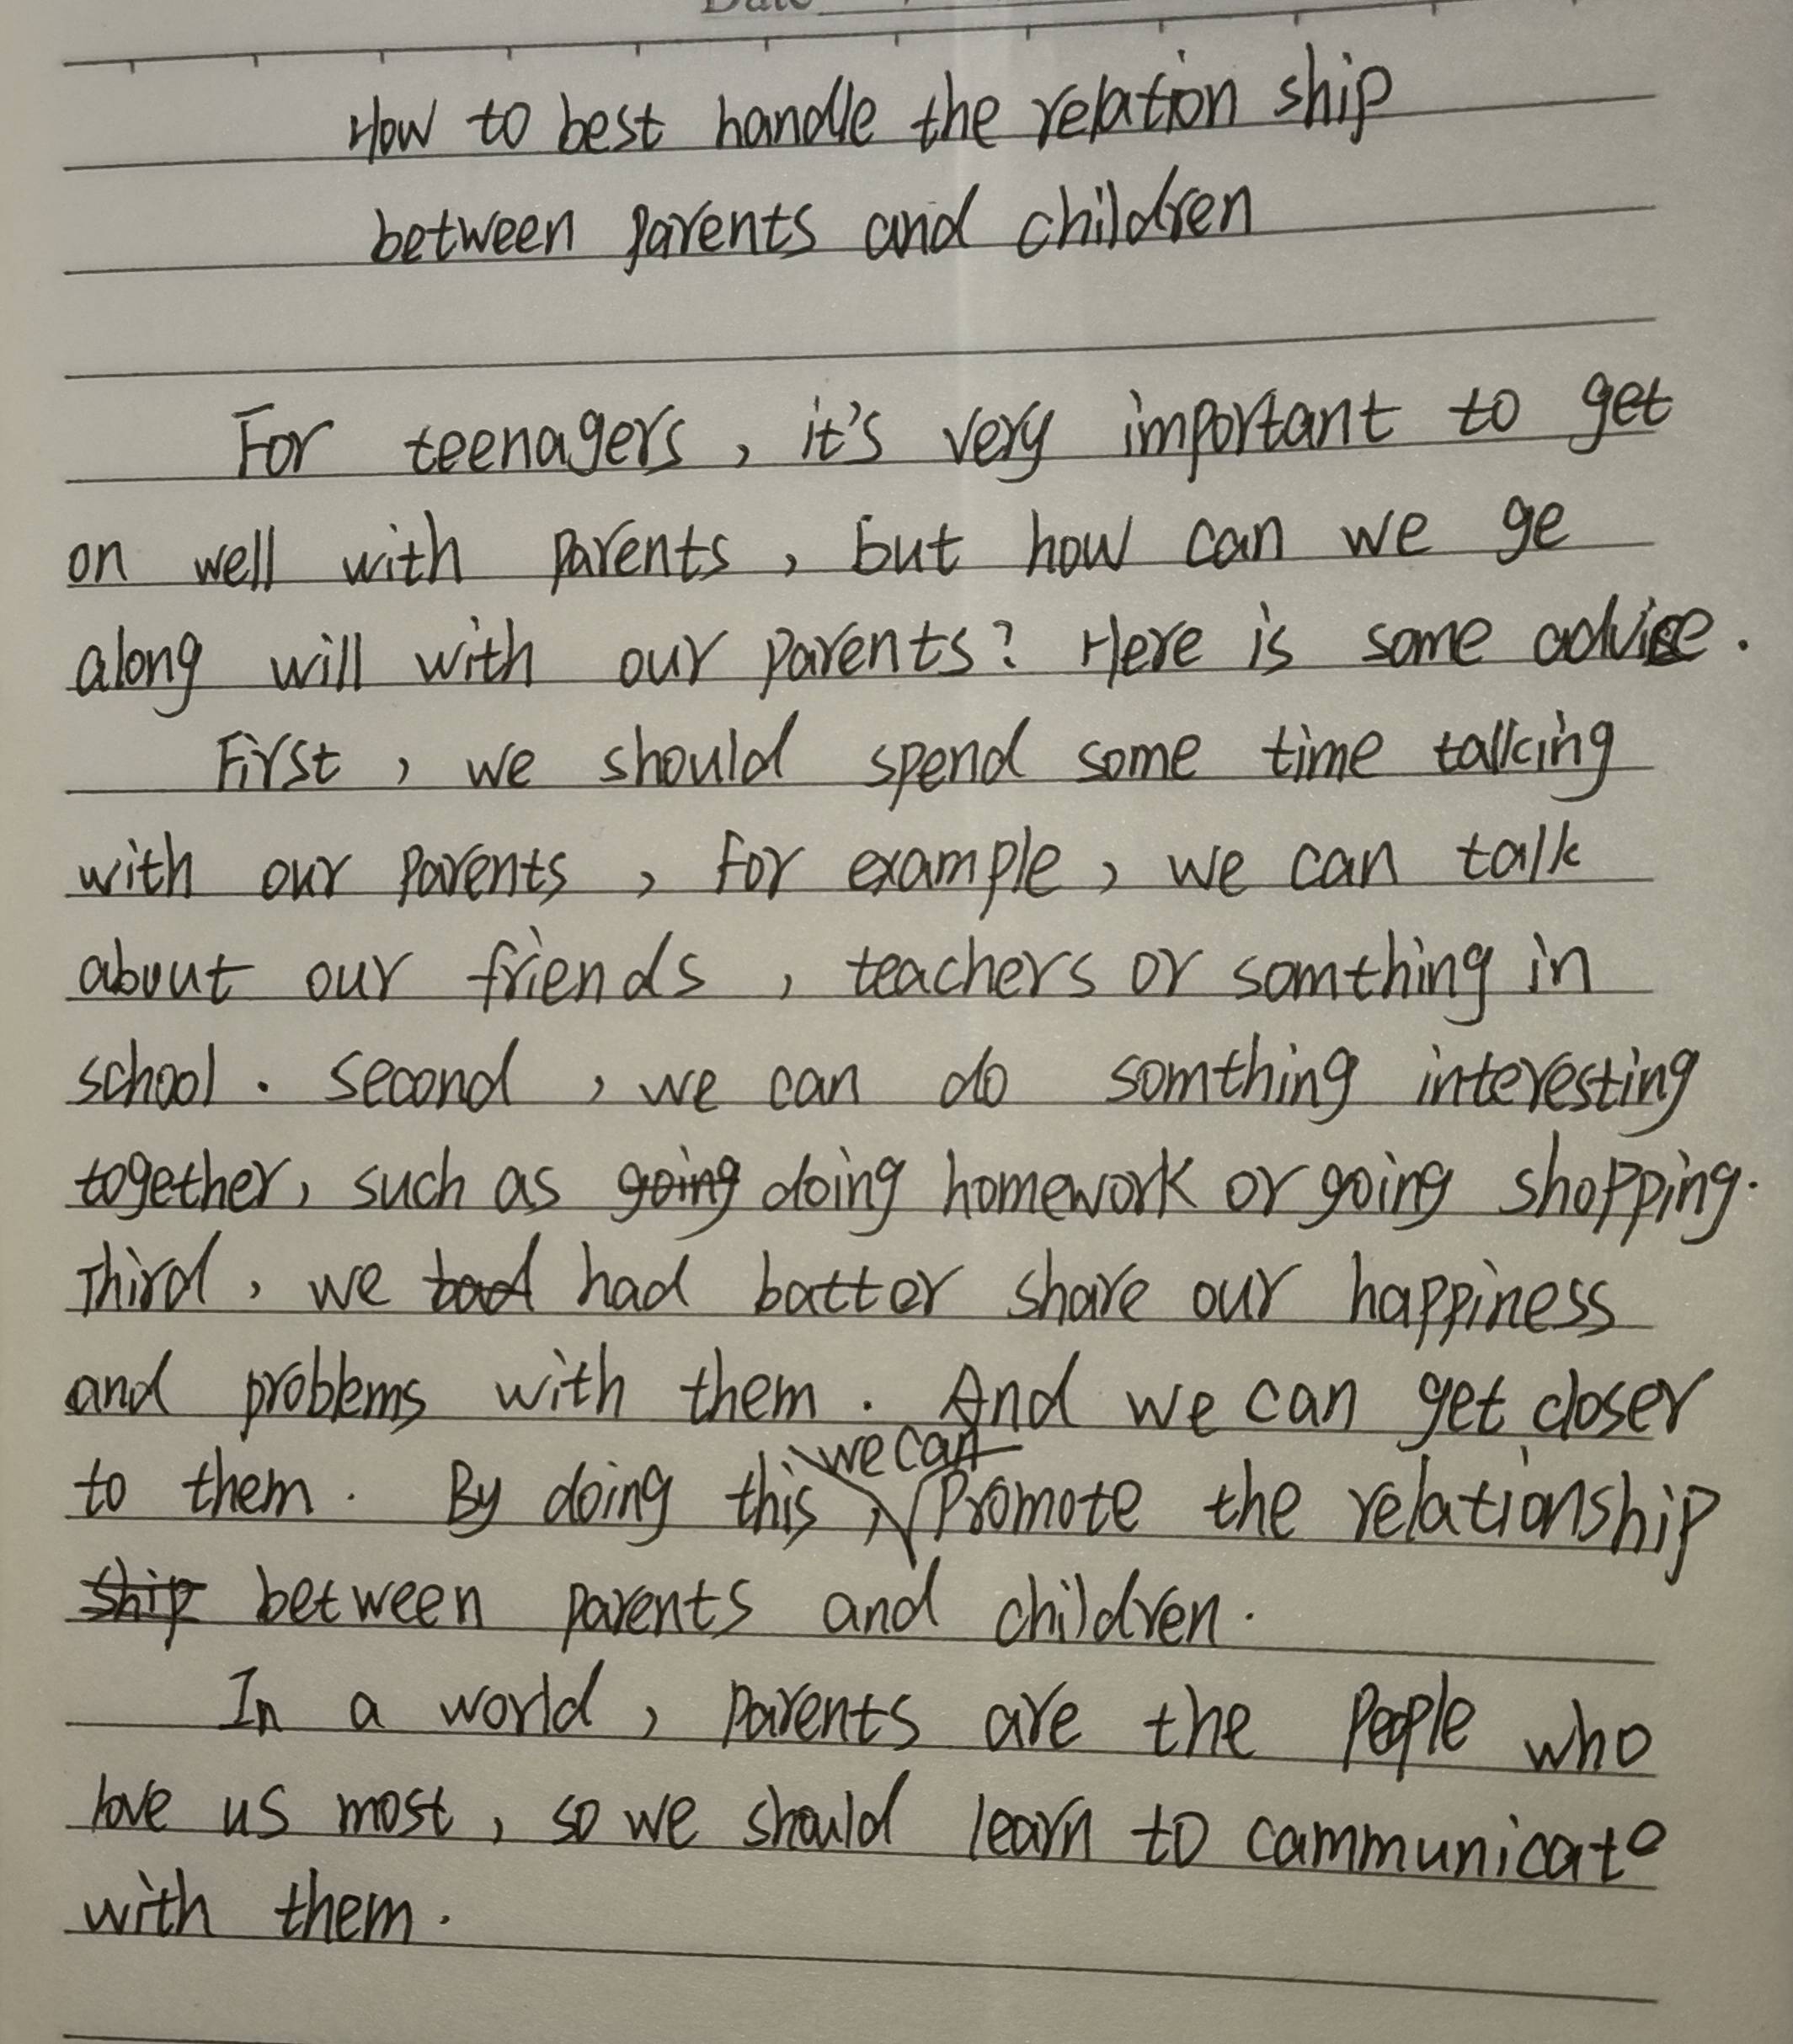 Date
How to best handle the relation ship
between parents and children
For teenagers, it's very important to get
on well with parents, but how can we ge
along will with our parents? Here is some advice.
First, we should spend some time talking
with our parents, For example, we can talk
about our friends, teachers or somthing in
school. Second, we can do somthing interesting
together, such as going doing homework or going shopping.
Third, we bad had batter share our happiness
and problems with them. And we can get closer
we can
to them. By doing this, promote the relationship
ship between parents and children.
In a world, parents are the people who
love us most, so we should learn to cammunicate
with them.